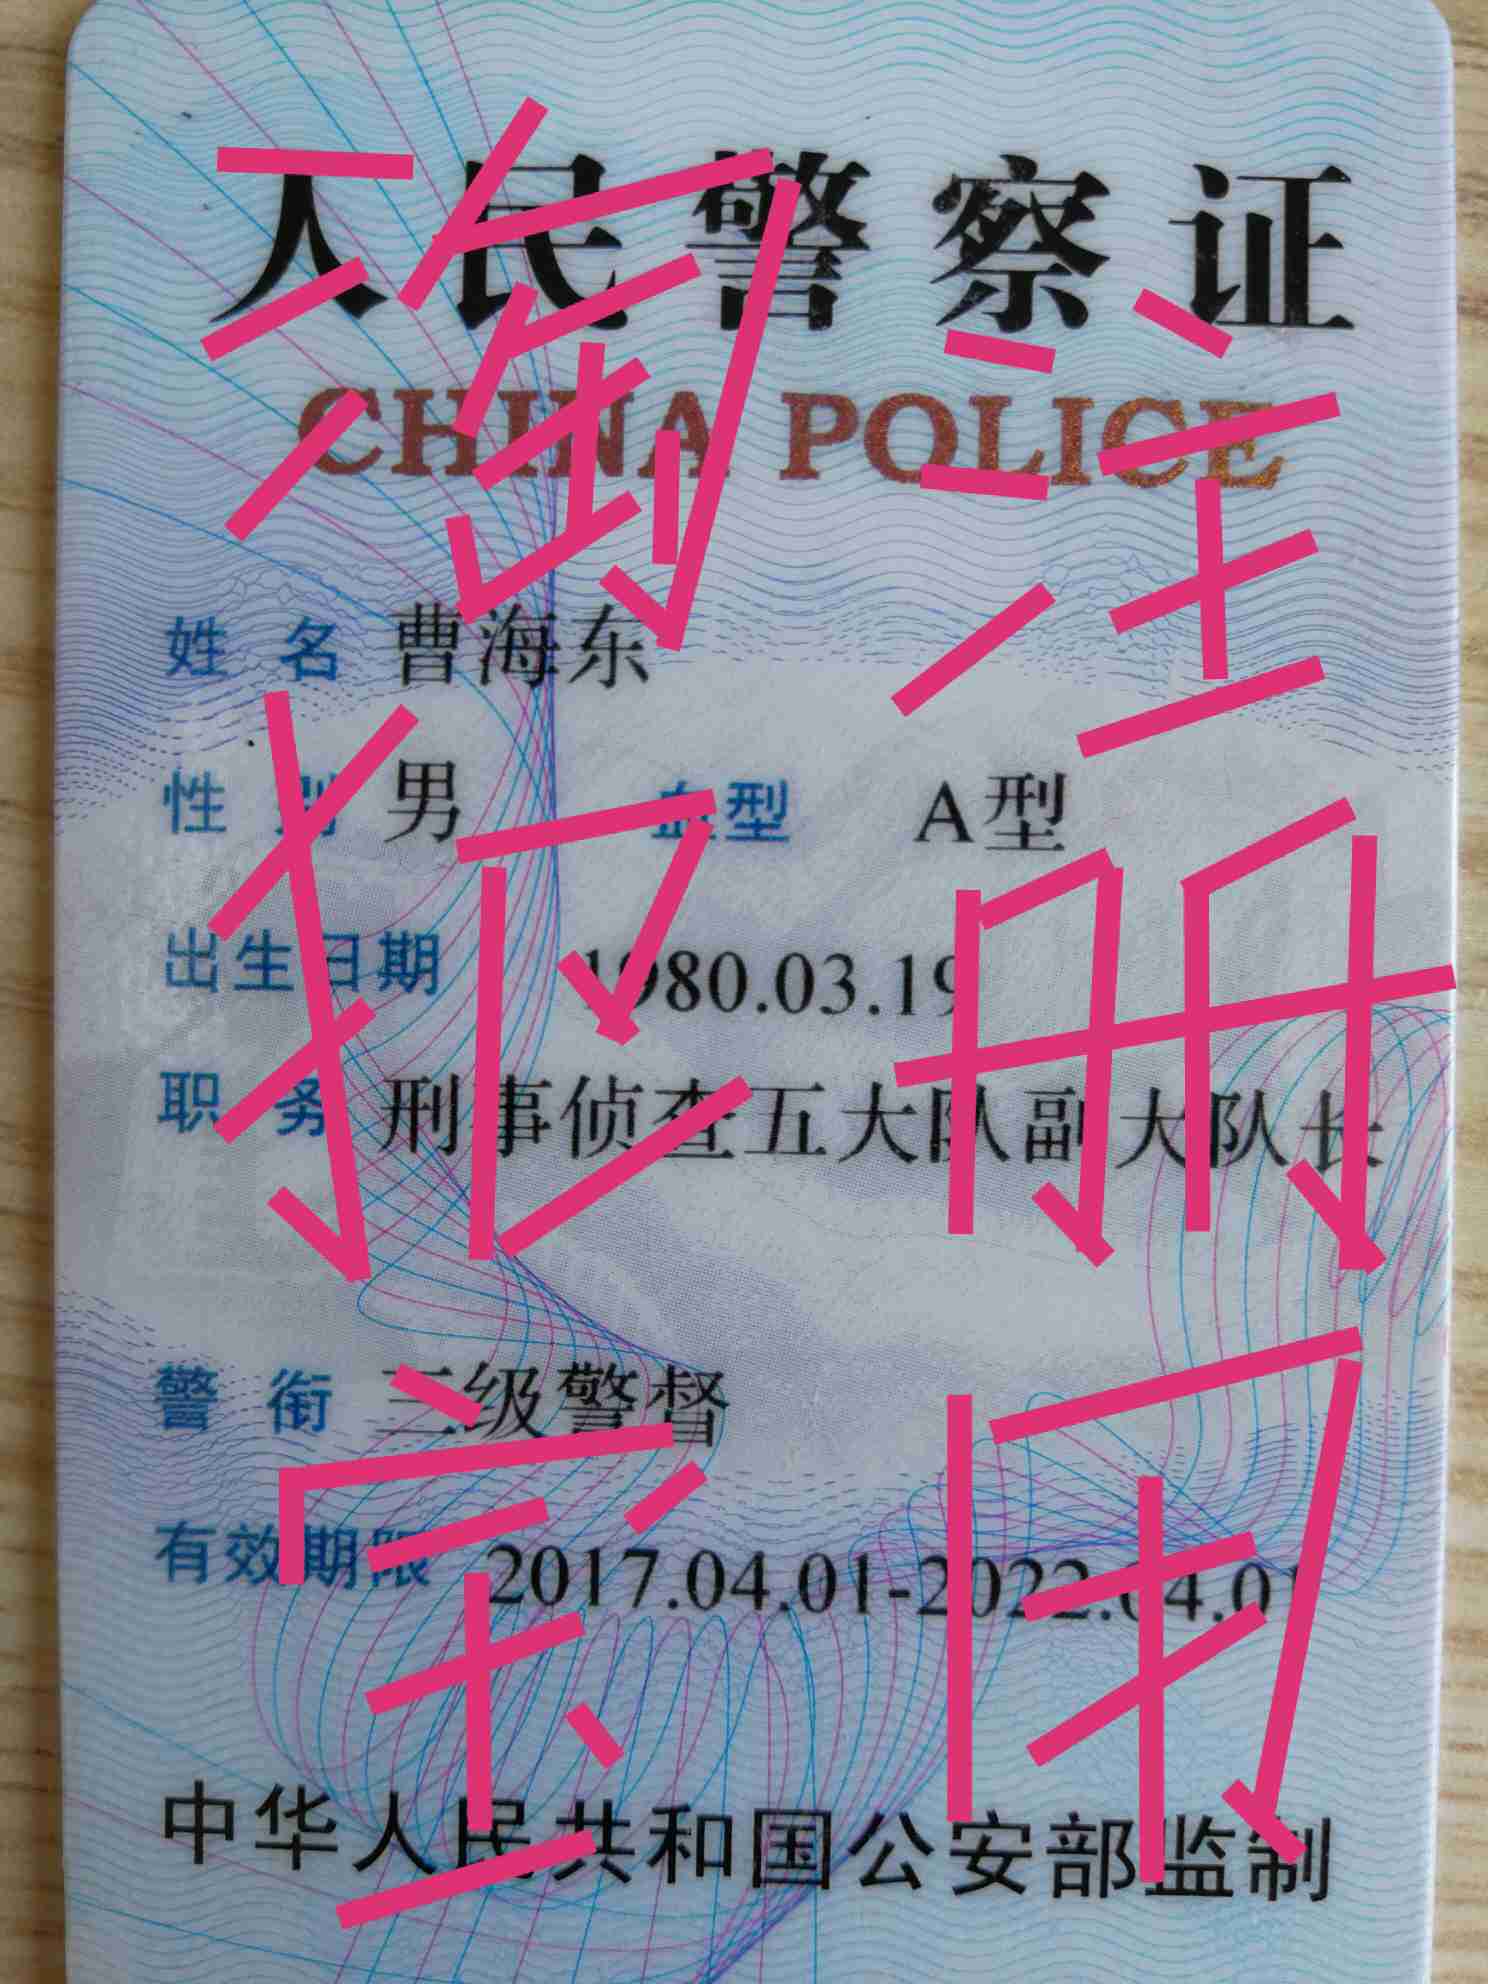 人民警察证
CHINA POLICE
姓 名 曹海东
性 别 男 血型 A型
出生日期 1980.03.19
职 务 刑事侦查五大队副大队长
警 衔 三级警督
有效期限 2017.04.01-2022.04.01
中华人民共和国公安部监制
淘宝
注册
团